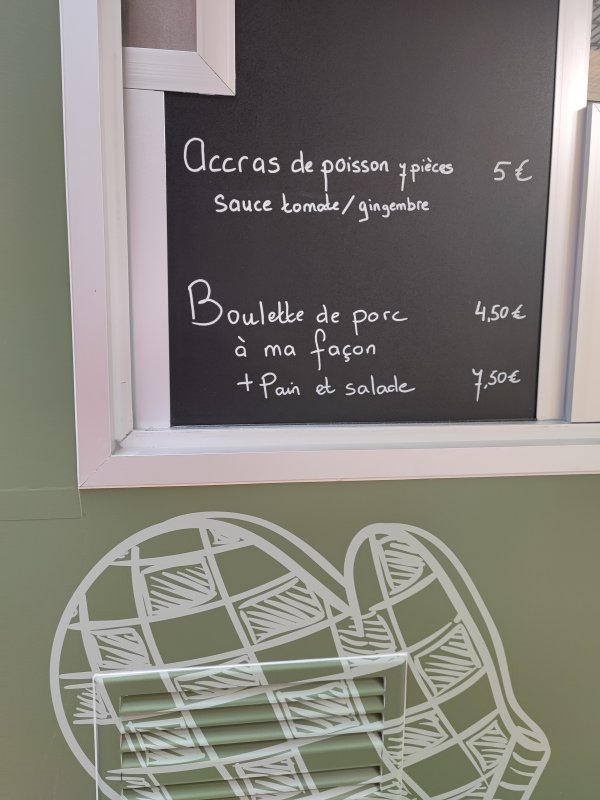 Accras de poisson 7 pièces 5€
Sauce tomate/gingembre
Boulette de porc 4,50€
à ma façon
+ Pain et salade 7,50€